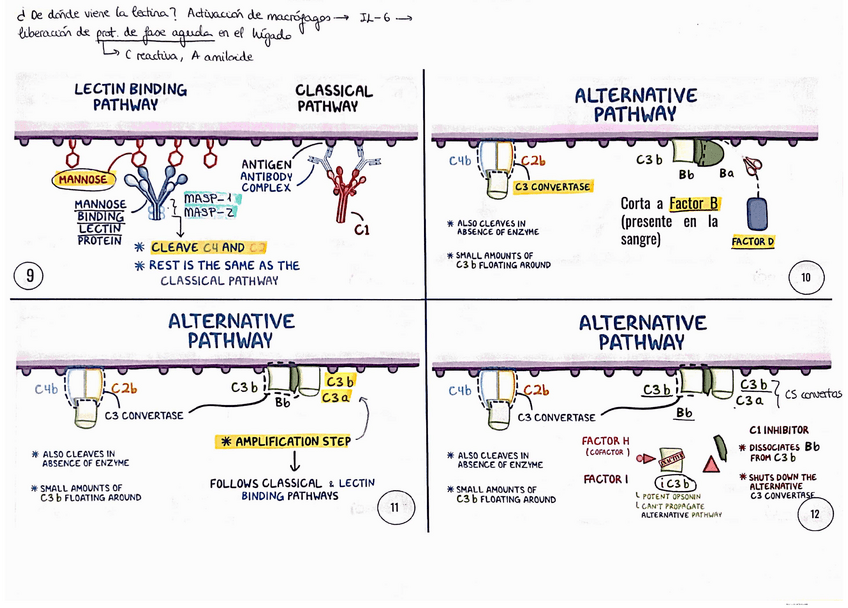 ¿ De dónde viene la lectina? Activación de macrófagos → IL-6 →
liberación de prot. de fase aguda en el hígado
↳ C reactiva, A amiloide
LECTIN BINDING
PATHWAY
CLASSICAL
PATHWAY
MANNOSE
MANNOSE
BINDING
LECTIN
PROTEIN
MASP-1
MASP-2
ANTIGEN
ANTIBODY
COMPLEX
C1
* CLEAVE C4 AND C2
* REST IS THE SAME AS THE
CLASSICAL PATHWAY
9
ALTERNATIVE
PATHWAY
C4b
C2b
C3 CONVERTASE
* ALSO CLEAVES IN
ABSENCE OF ENZYME
* SMALL AMOUNTS OF
C3b FLOATING AROUND
C3b
Bb
Ba
Corta a Factor B
(presente en la
sangre)
FACTOR D
10
ALTERNATIVE
PATHWAY
C4b
C2b
C3 CONVERTASE
C3b
Bb
C3b
C3a
* AMPLIFICATION STEP
FOLLOWS CLASSICAL & LECTIN
BINDING PATHWAYS
* ALSO CLEAVES IN
ABSENCE OF ENZYME
* SMALL AMOUNTS OF
C3b FLOATING AROUND
11
ALTERNATIVE
PATHWAY
C4b
C2b
C3 CONVERTASE
C3b
Bb
C3b
C3a
C5 convertas
* ALSO CLEAVES IN
ABSENCE OF ENZYME
* SMALL AMOUNTS OF
C3b FLOATING AROUND
FACTOR H
(COFACTOR)
FACTOR I
INACTIVE
iC3b
POTENT OPSONIN
CAN'T PROPAGATE
ALTERNATIVE PATHWAY
C1 INHIBITOR
* DISSOCIATES Bb
FROM C3b
* SHUTS DOWN THE
ALTERNATIVE
C3 CONVERTASE
12